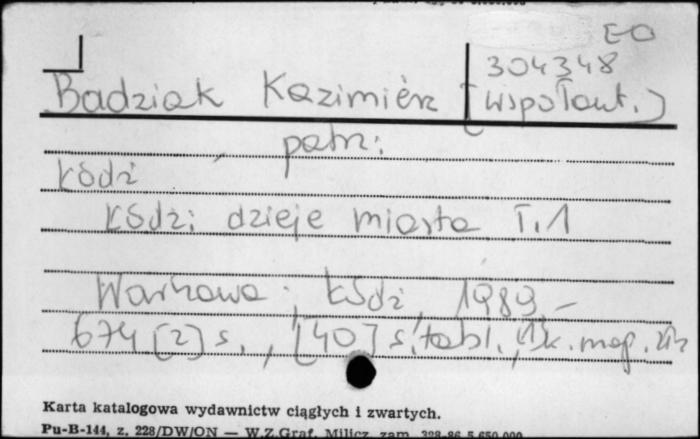 EO
304348
Badziak Kazimierz (współaut.)
patrz:
Łódź
Łódź: dzieje miasta T.1
Warszawa; Łódź, 1989.–
674 [2] s., [40] s. tabl., 1 k. map.
Karta katalogowa wydawnictw ciągłych i zwartych.
Pu-B-144, z. 228/DW/ON — W.Z.Graf. Milicz zam. 328-86 5.650.000